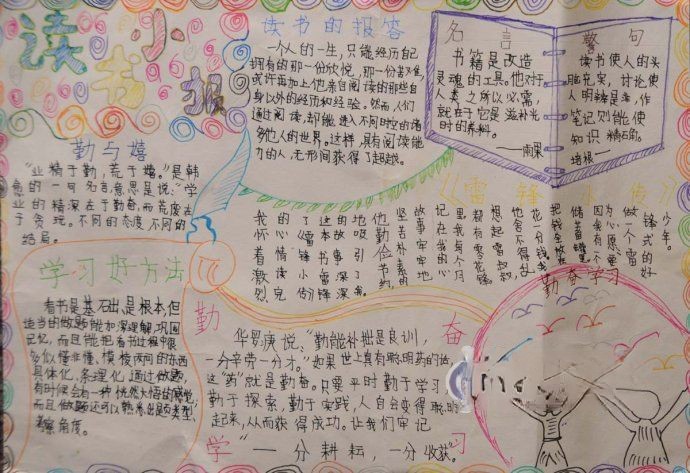 读书小报
读书的报答
一个人的一生，只能经历自己
拥有的那一份欣悦，那一份苦难，
或许再加上他亲自阅读的那些自
身以外的经历和经验。然而，人们
通过阅读，却能进入不同时空的诸
多他人的世界。这样，具有阅读能
力的人，无形间获得了超越。
名言
书籍是改造
灵魂的工具。他对于
人类之所以必需，
就在于它是滋补光
时的养料。
——雨果
警句
读书使人的头
脑充实，讨论使
人明辨是非，作
笔记则能使
知识精确。
培根
勤与嬉
“业精于勤，荒于嬉。”是韩
愈的一句名言，意思是说：“学
业的精深在于勤奋，而荒废在
于贪玩。不同的态度不同的
结局。
《雷锋小传》
我怀着激烈
的心情读完
了《雷锋传》
这本书深深
故事牢牢地
都有零花钱
他舍不得乱
花一分钱
做一个雷
锋式的好
少年。
学习好方法
看书是基础、是根本，但
适当的做题能加深理解，巩固
记忆，而且能把看书过程中很
多似懂非懂、模棱两间的东西
具体化、条理化，通过做题，
有时候会有一种恍然大悟的感觉，
而且做题还可以熟悉出题类型、
考察角度。
勤奋学习
华罗庚说：“勤能补拙是良训，
一分辛劳一分才。”如果世上真有聪明药的话，
这“药”就是勤奋。只要平时勤于学习，
勤于探索，勤于实践，人自会变得聪明
起来，从而获得成功。让我们牢记
“一分耕耘，一分收获。”
勤奋学习